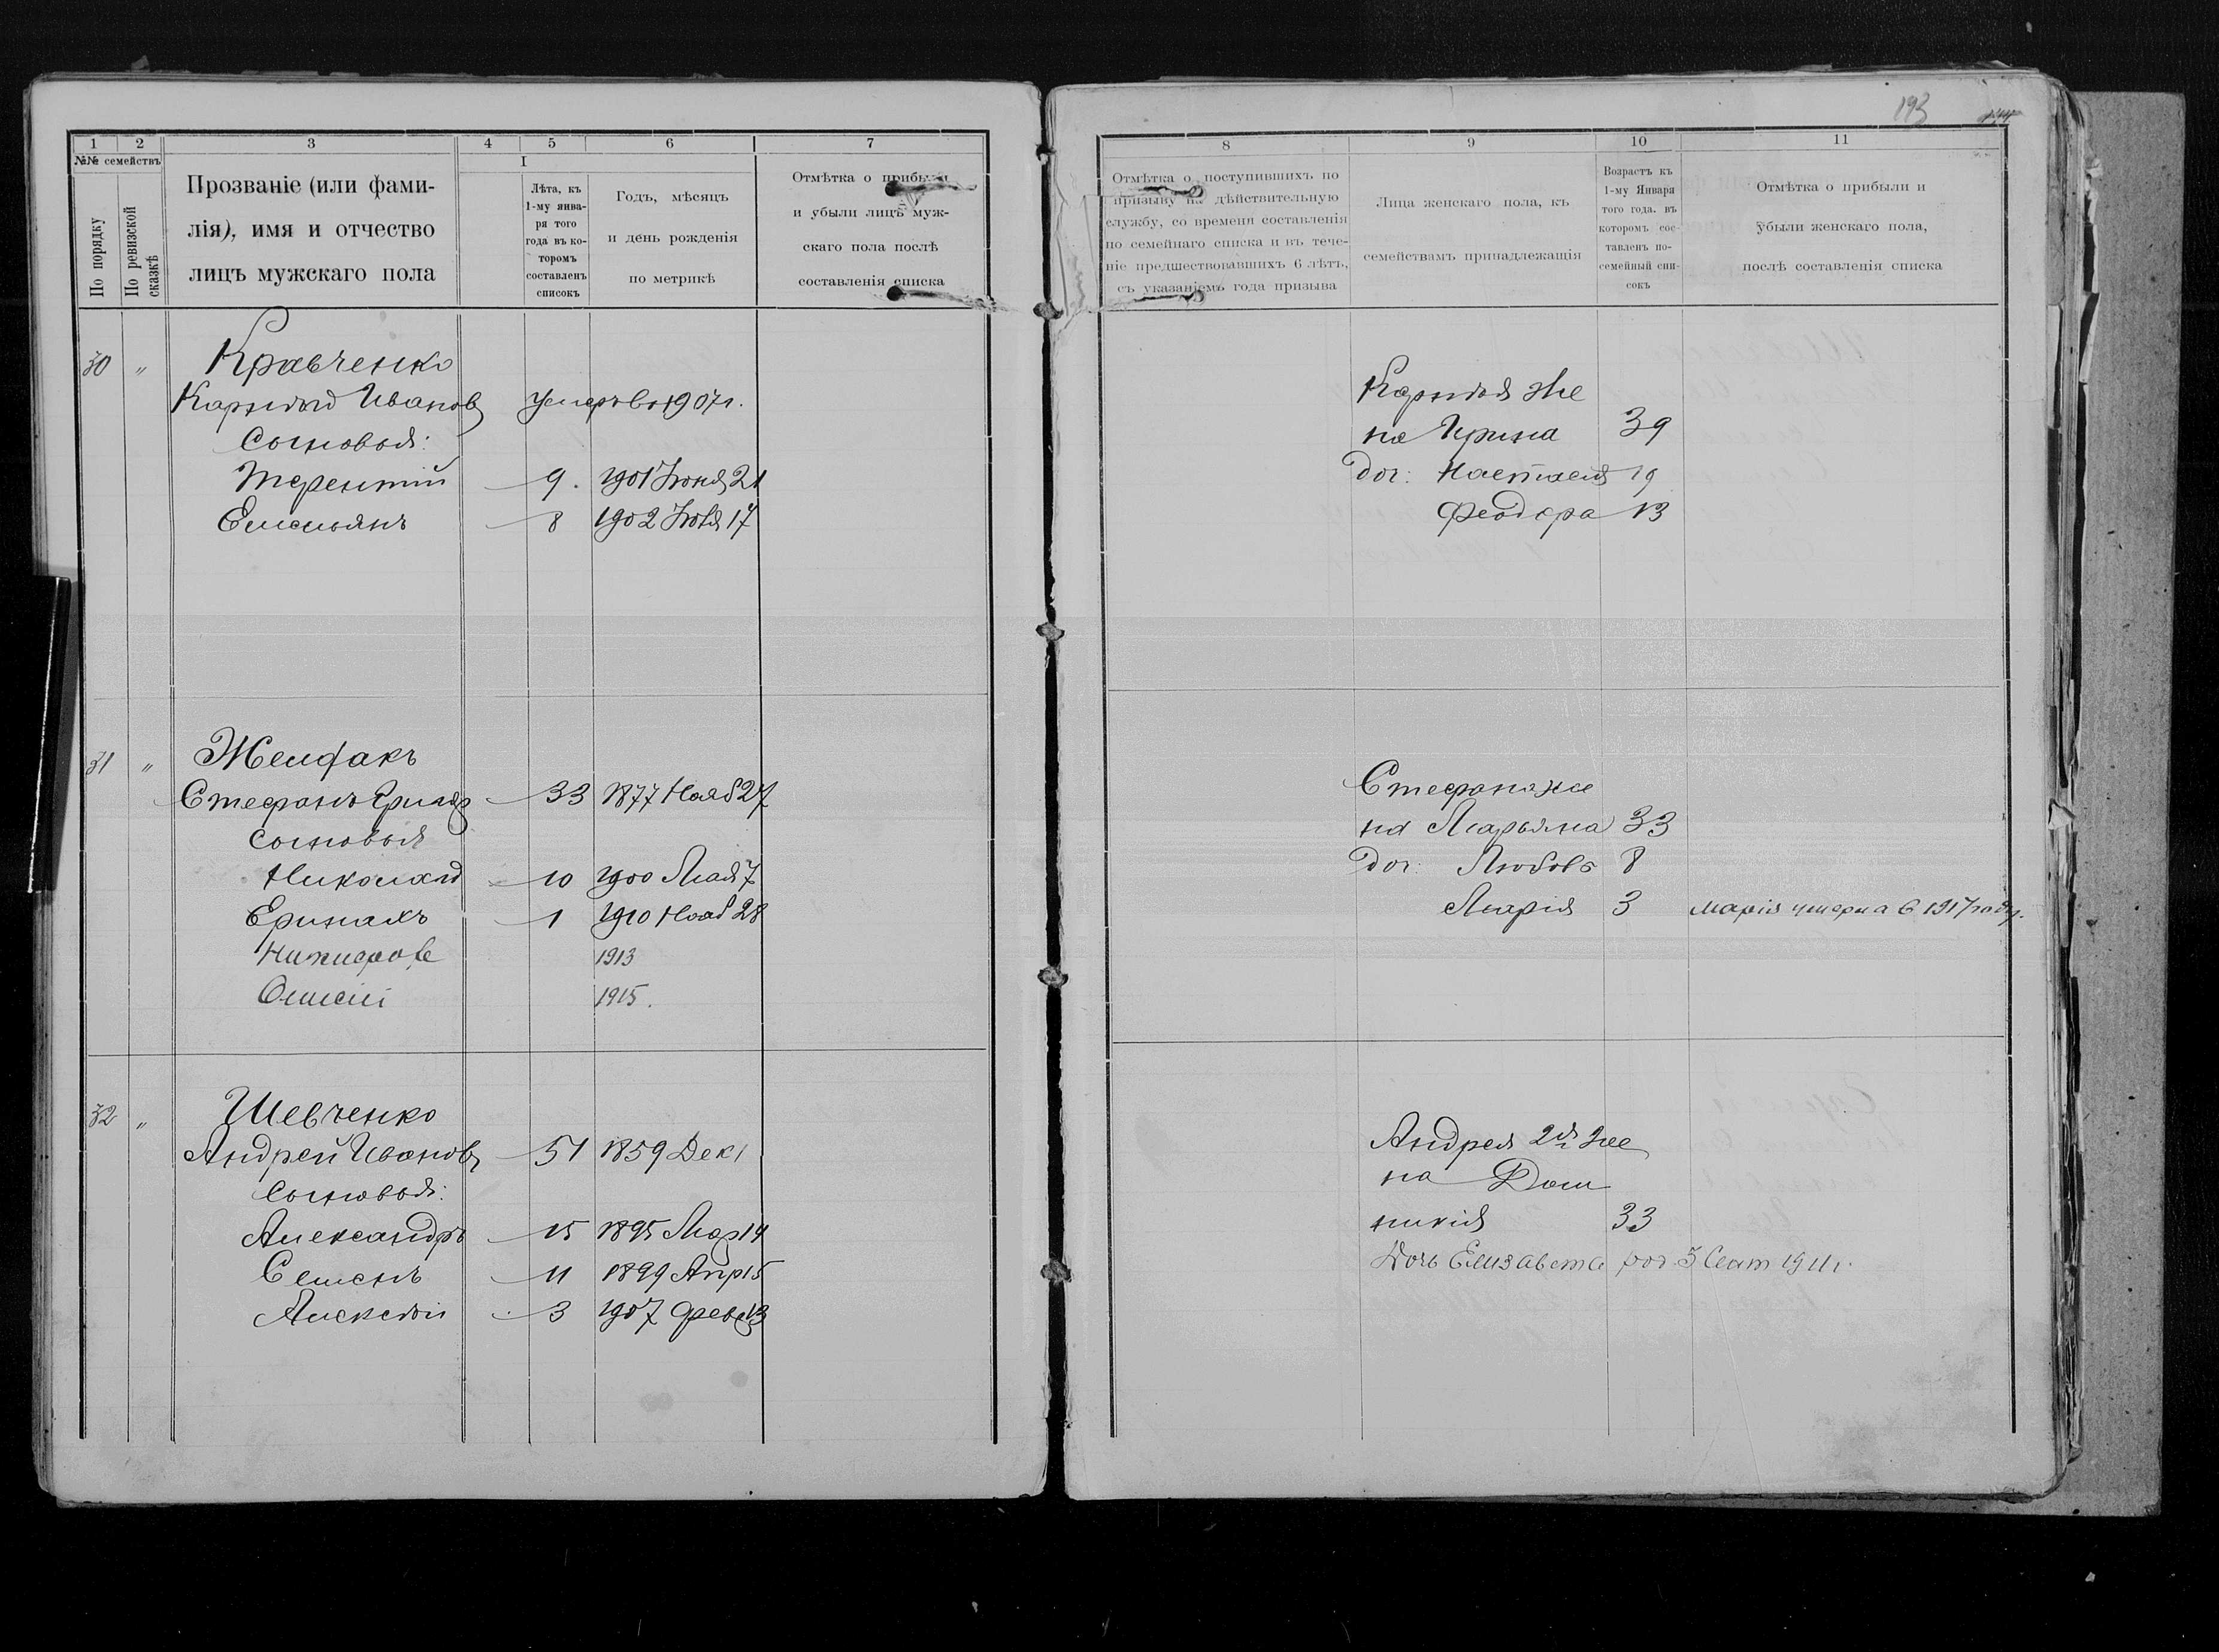 193
1 2 3 4 5 6 7
№№ семействъ
По порядку
По ревизской сказкѣ
Прозваніе (или фами-
лія), имя и отчество
лицъ мужскаго пола
I
Лѣта, къ
1-му янва-
ря того
года въ ко-
торомъ
составленъ
списокъ
Годъ, мѣсяцъ
и день рожденія
по метрикѣ
Отмѣтка о прибыли
и убыли лицъ муж-
скаго пола послѣ
составленія списка
30 " Кравченко
Карпъ Иванов умеръ въ 1907 г.
Сыновья:
Терентій 9. 1901 Іюня 21
Емельянъ 8 1902 Іюля 17
31 "
Стефанъ 33 1877 Нояб 27
Сыновья
Николай 10 1900 Мая 7
1 1910 Нояб 28
1913
1915.
32 " Шевченко
Андрей Иванов 51 1859 Дек 1
Сыновья:
Александръ 15 1895 Мар 14
Семенъ 11 1899 Апр 15
Алексѣй 3 1907 Февр 13
8 9 10 11
Отмѣтка о поступившихъ по
призыву на дѣйствительную
службу, со времени составленія
по семейнаго списка и въ тече-
ніе предшествовавшихъ 6 лѣтъ,
съ указаніемъ года призыва
Лица женскаго пола, къ
семействамъ принадлежащія
Возрастъ къ
1-му Января
того года. въ
которомъ сос-
тавленъ по-
семейный спи-
сокъ
Отмѣтка о прибыли и
убыли женскаго пола,
послѣ составленія списка
же
на Ирина 39
доч: Настасія 19
Феодора 13
Стефана же
на Марьяна 33
доч: Любовь 8
Марія 3 Марія умерла в 1917 году.
Андрея 2я же
на Дом
никія 33
Дочь Елизавета род. 5 Сент 1911 г.